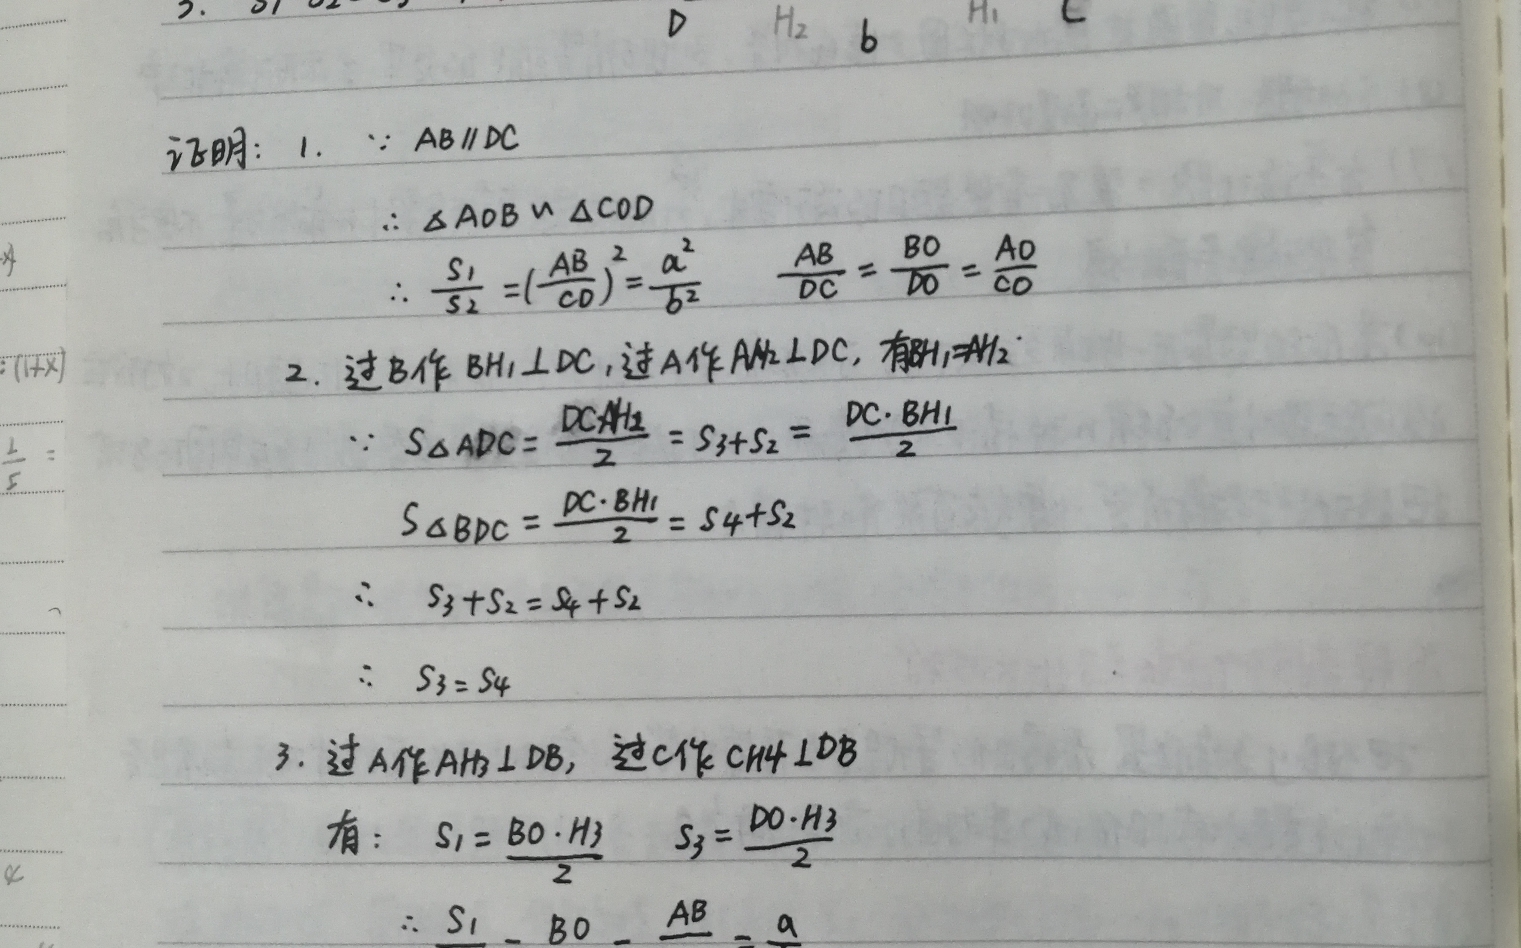 D H₂ b H₁ C
证明: 1. ∵ AB∥DC
∴ △AOB ∽ △COD
∴ S₁/S₂ = (AB/CO)² = a²/b² AB/DC = BO/DO = AO/CO
2. 过B作 BH₁⊥DC, 过A作AH₂⊥DC, 有BH₁=AH₂
∵ S△ADC = DC·AH₂/2 = S₃+S₂ = DC·BH₁/2
S△BDC = DC·BH₁/2 = S4+S₂
∴ S₃+S₂ = S4+S₂
∴ S₃=S4
3. 过A作AH₃⊥DB, 过C作CH4⊥DB
有: S₁ = BO·H3/2 S₃ = DO·H3/2
∴ S₁ = BO = AB = a
:(1+x)
1/5 =